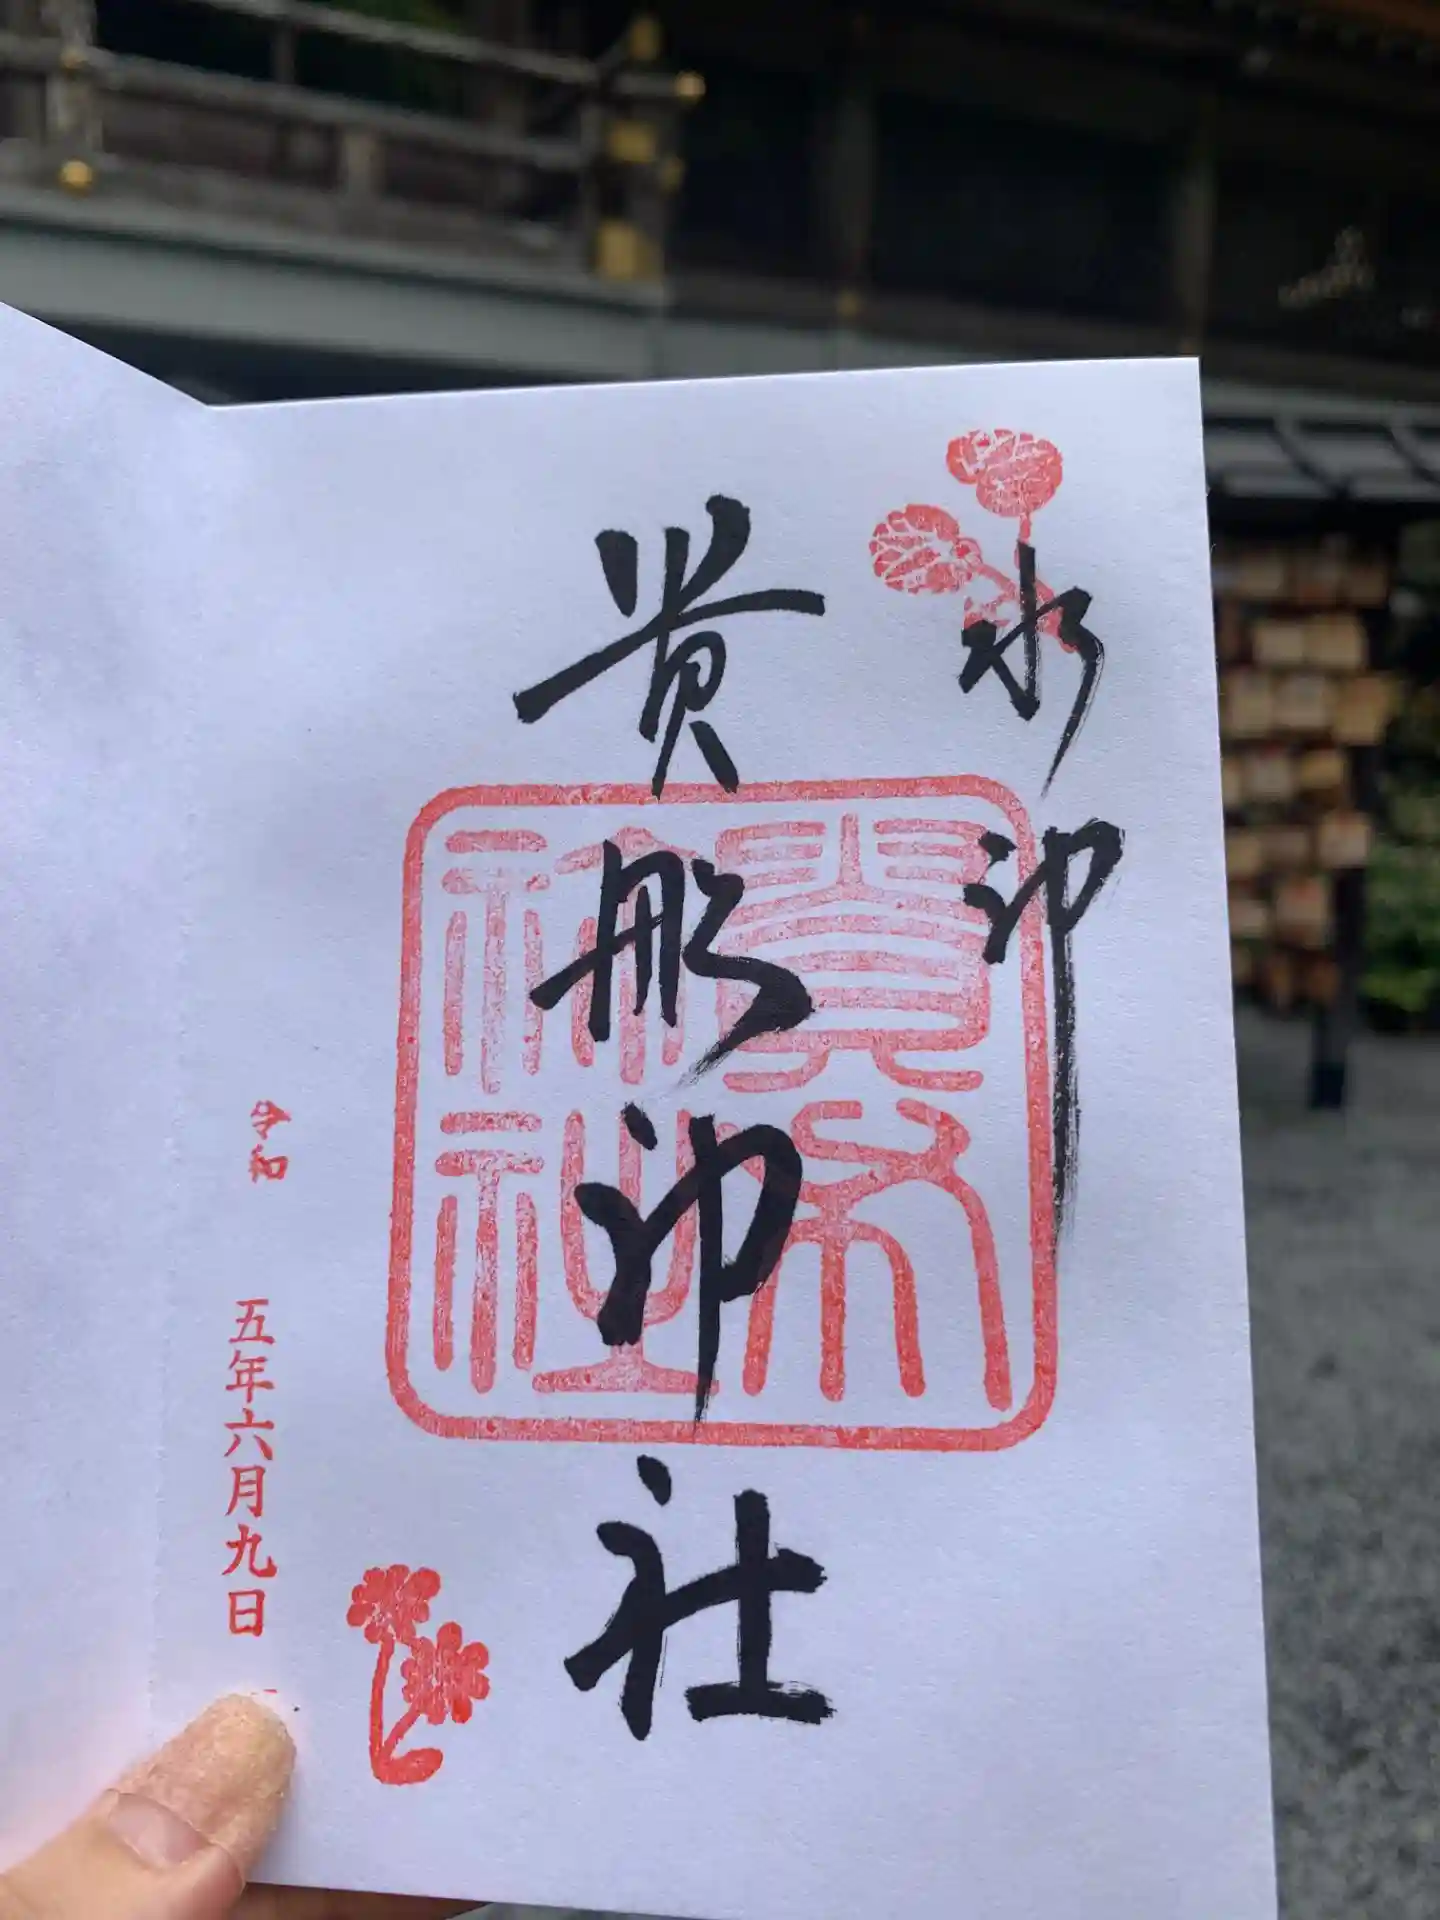 水神
貴船神社
貴布祢神社
令和
五年六月九日